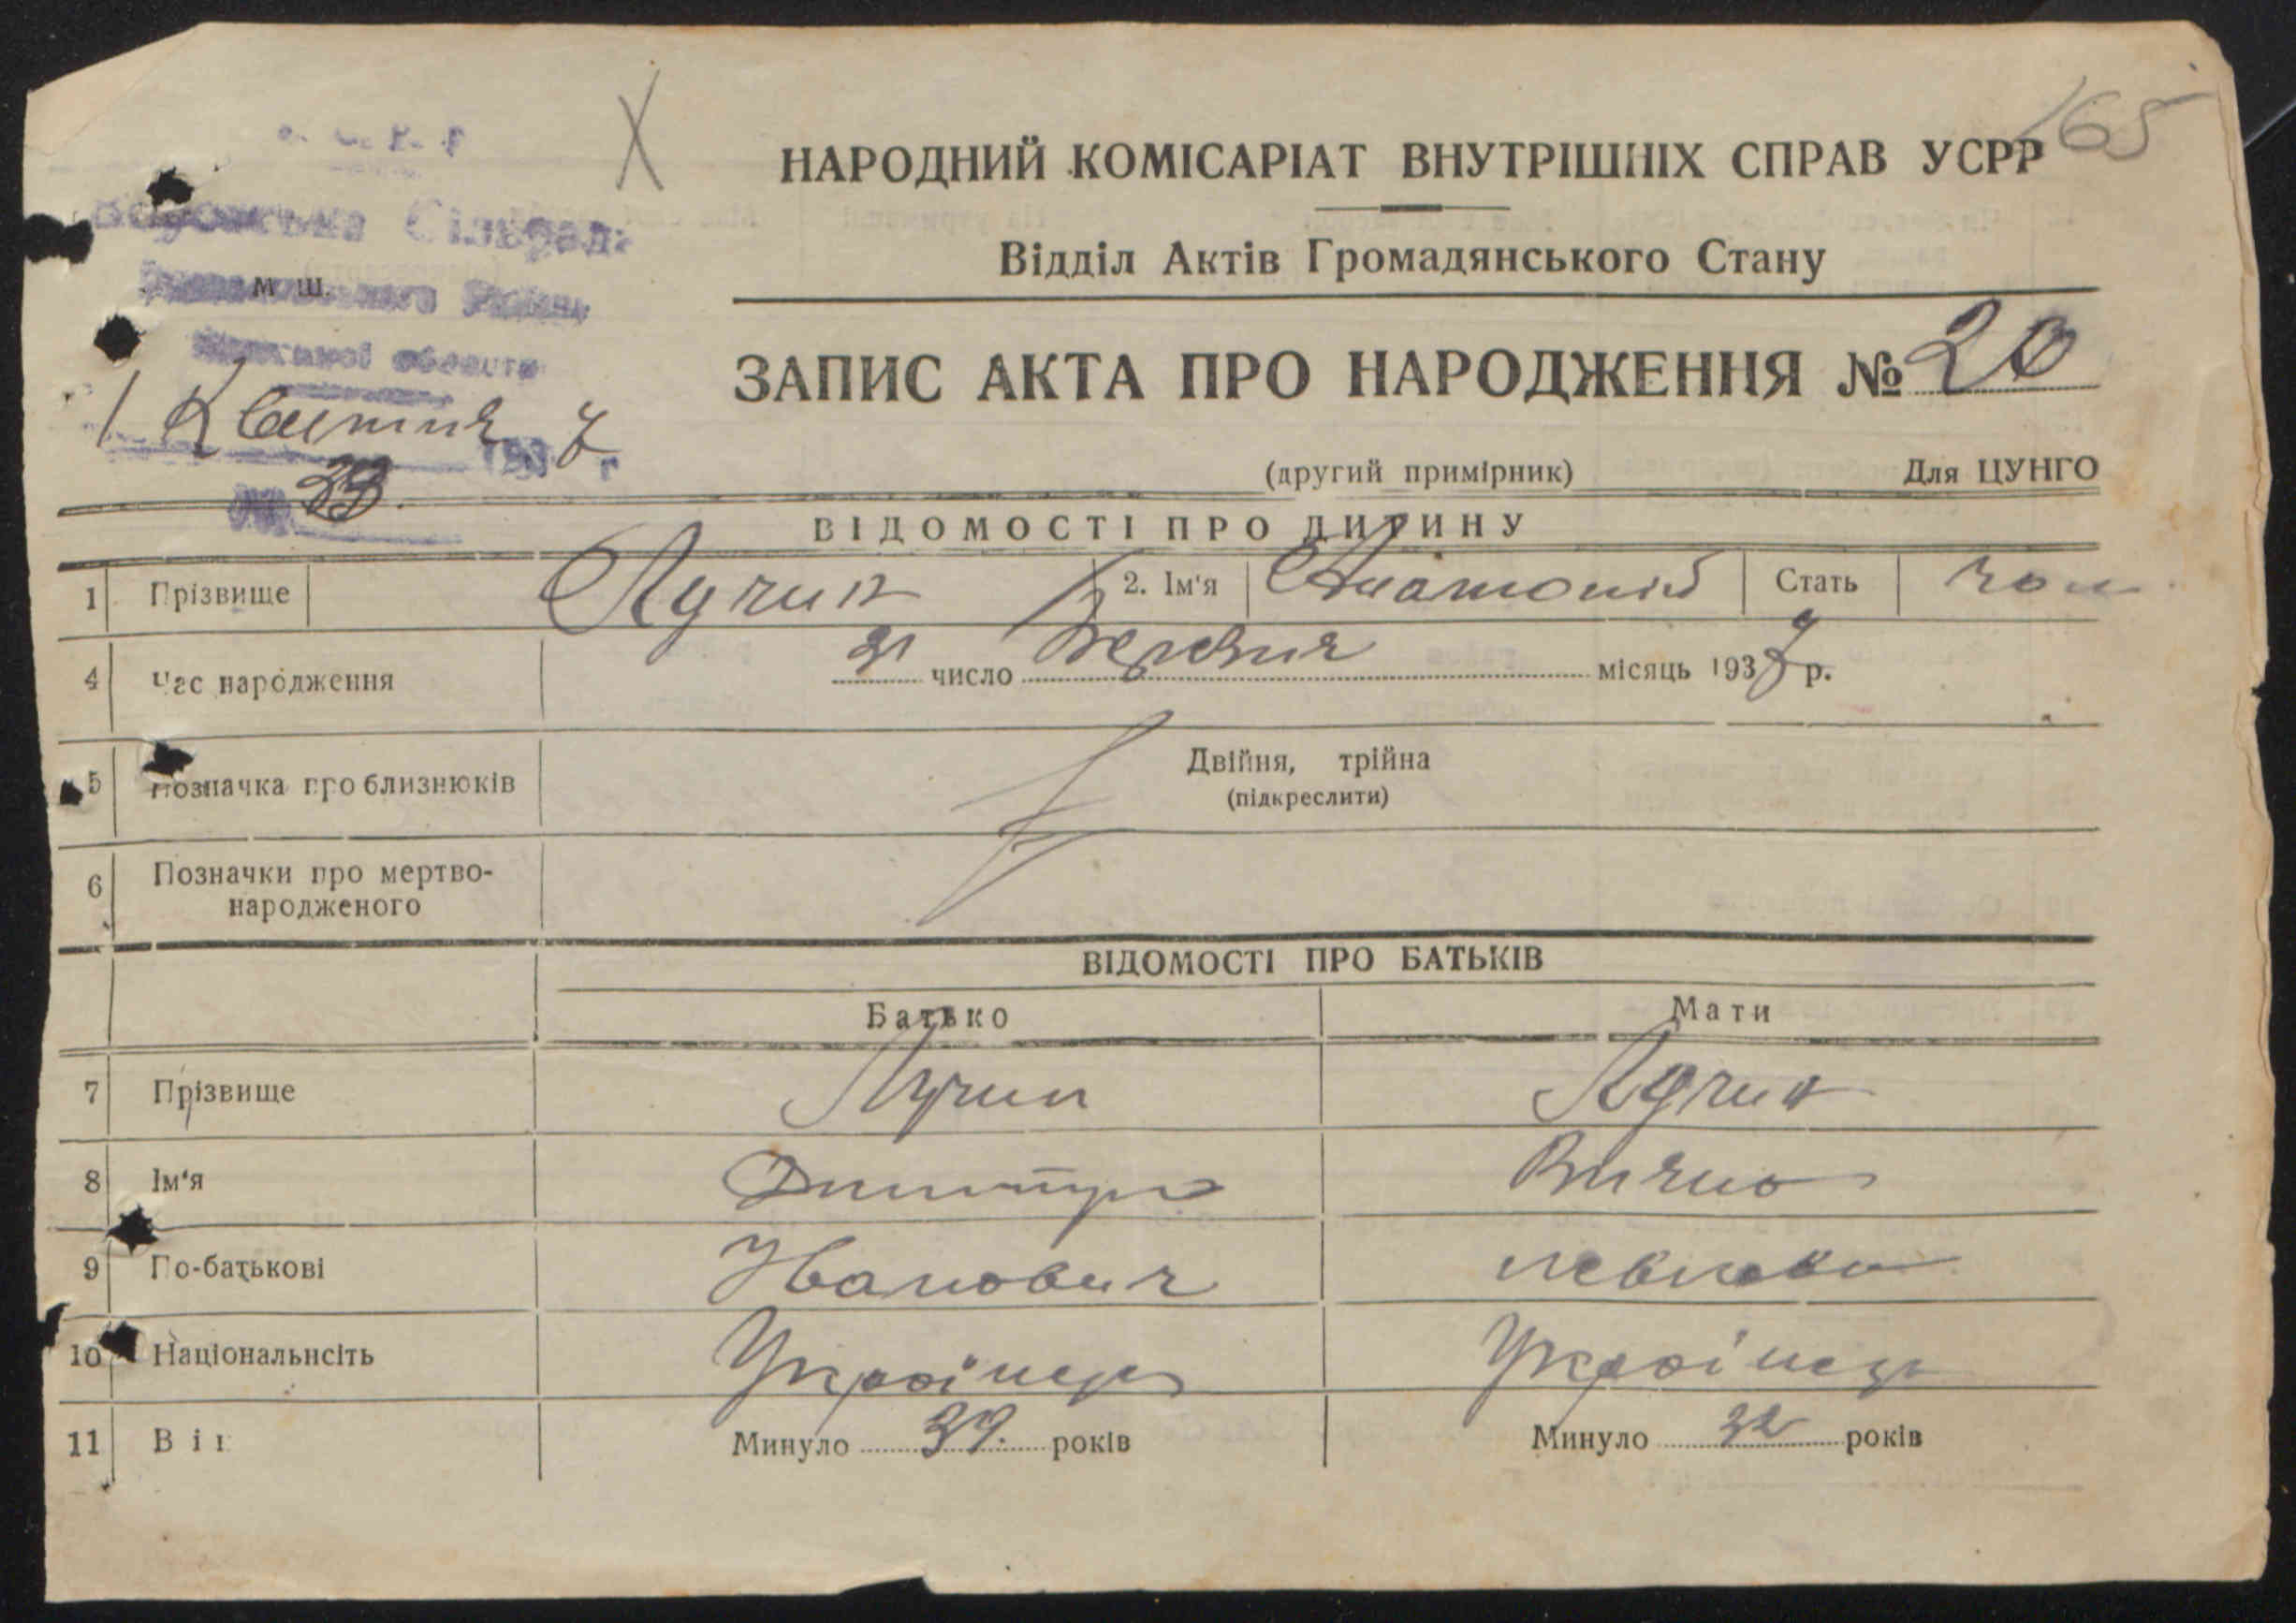 165
НАРОДНИЙ КОМІСАРІАТ ВНУТРІШНІХ СПРАВ УСРР
Відділ Актів Громадянського Стану
Сільрада
м ш.
області
ЗАПИС АКТА ПРО НАРОДЖЕННЯ № 20
1 Квітня 1937 г
(другий примірник) Для ЦУНГО
№ 39.
ВІДОМОСТІ ПРО ДИТИНУ
1 Прізвище Лучик 2. Ім'я Анатолій Стать чол
4 Час народження 31 число Березня місяць 1937 р.
5 Позначка про близнюків Двійня, трійна
(підкреслити)
6 Позначки про мертво-
народженого
ВІДОМОСТІ ПРО БАТЬКІВ
Батько Мати
7 Прізвище Лучик Лучик
8 Ім'я Дмитро
9 По-батькові Иванович
10 Національнсіть Українець Українець
11 Вік Минуло 39. років Минуло 32 років